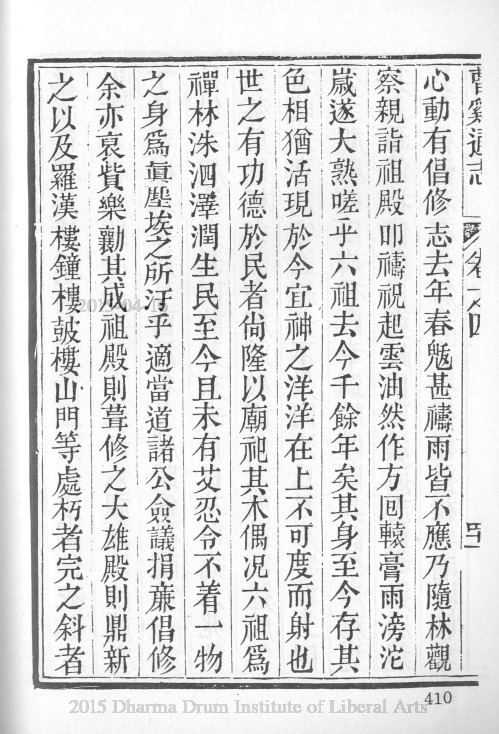 曹溪通志 卷之四
心動有倡修志去年春魃甚禱雨皆不應乃隨林觀
察親詣祖殿叩禱祝起雲油然作方回轅膏雨滂沱
嵗遂大熟嗟乎六祖去今千餘年矣其身至今存其
色相猶活現於今宜神之洋洋在上不可度而射也
世之有功德於民者尙隆以廟祀其木偶况六祖爲
禪林洙泗澤潤生民至今且未有艾忍令不着一物
之身爲眞塵埃之所汙乎適當道諸公僉議捐亷倡修
余亦裒貲樂勷其成祖殿則葺修之大雄殿則鼎新
之以及羅漢樓鐘樓皷樓山門等處朽者完之斜者
410
2015 Dharma Drum Institute of Liberal Arts